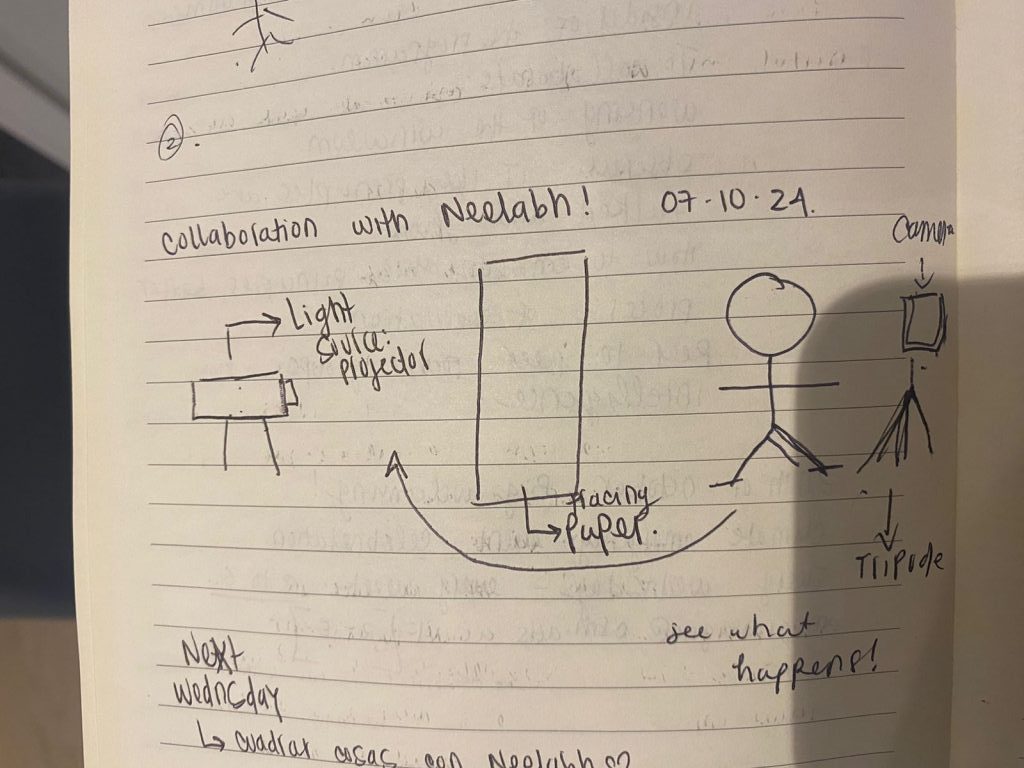 2.
Collaboration with Neelabh! 07-10-24.
Camera
Light
source:
projector
tracing
paper.
Tripode
see what
happens!
Next
Wednesday
↳ cuadrar cosas con Neelabh